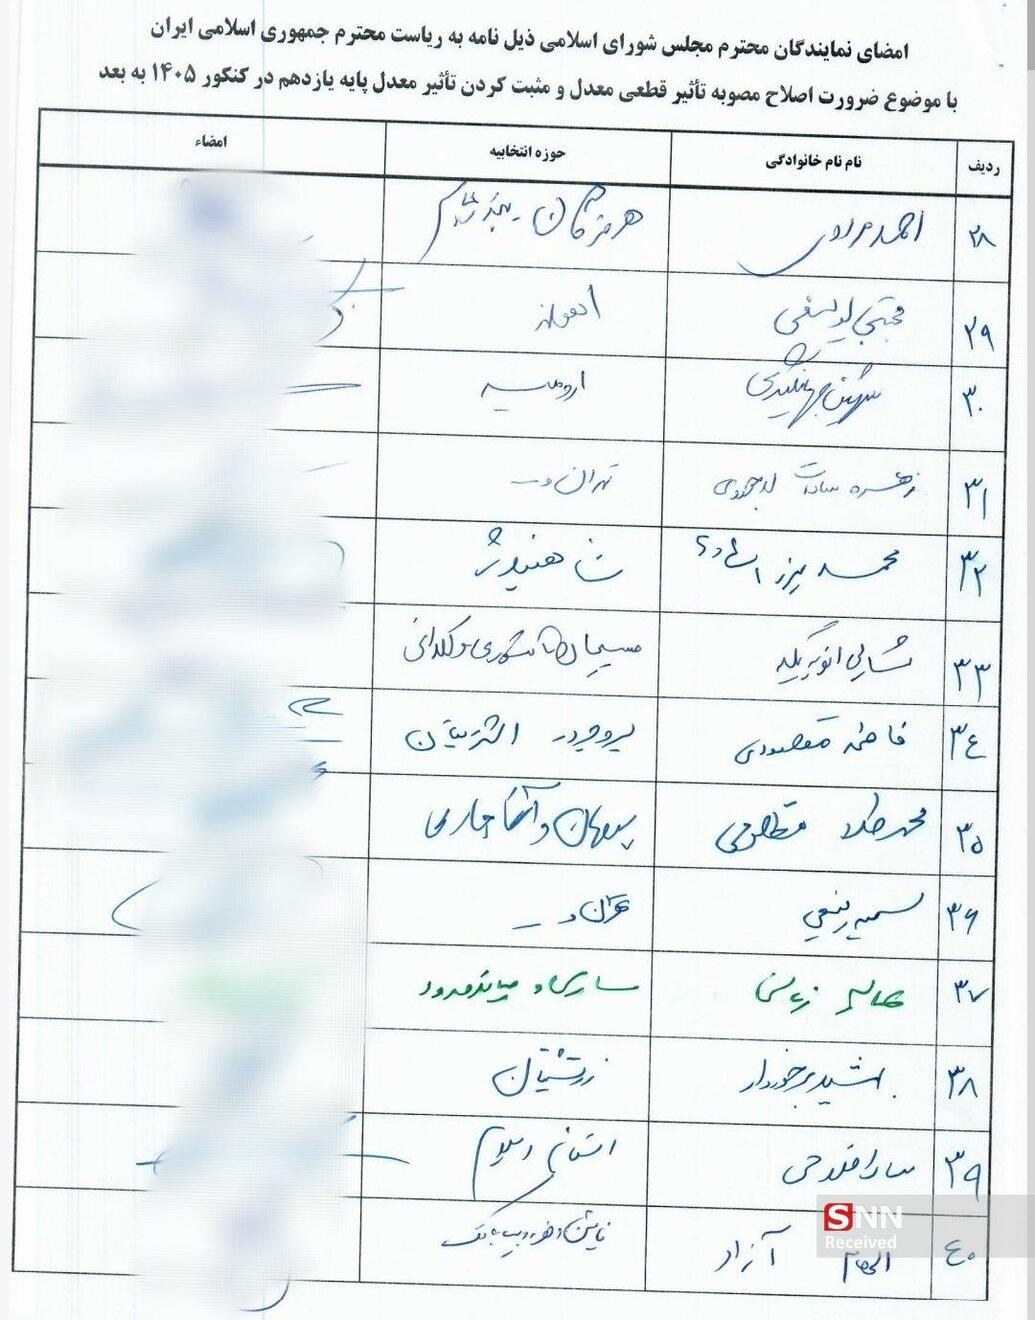 امضای نمایندگان محترم مجلس شورای اسلامی ذیل نامه به ریاست محترم جمهوری اسلامی ایران
با موضوع ضرورت اصلاح مصوبه تأثیر قطعی معدل و مثبت کردن تأثیر معدل پایه یازدهم در کنکور ۱۴۰۵ به بعد
ردیف نام نام خانوادگی حوزه انتخابیه امضاء
۲۸ احمد مرادی هرمزگان بندرعباس
۲۹ مجتبی یوسفی اهواز
۳۰ شهین جهانگیری ارومیه
۳۱ زهره سادات لاجوردی تهران و
۳۲ محمد میرزا شاهین‌دژ
۳۳ شارلی انویه تکیه مسیحیان آشوری و کلدانی
۳۴ فاطمه مقصودی بروجرد اشترینان
۳۵ محمد طلا مظلومی بهبهان و آغاجاری
۳۶ سمیه رفیعی تهران و
۳۷ عالیه زمانی ساری و میاندورود
۳۸ بهشید برخوردار زرتشتیان
۳۹ سارا فلاحی استان ایلام
۴۰ الهام آزاد نایین و خور و بیابانک
SNN
Received